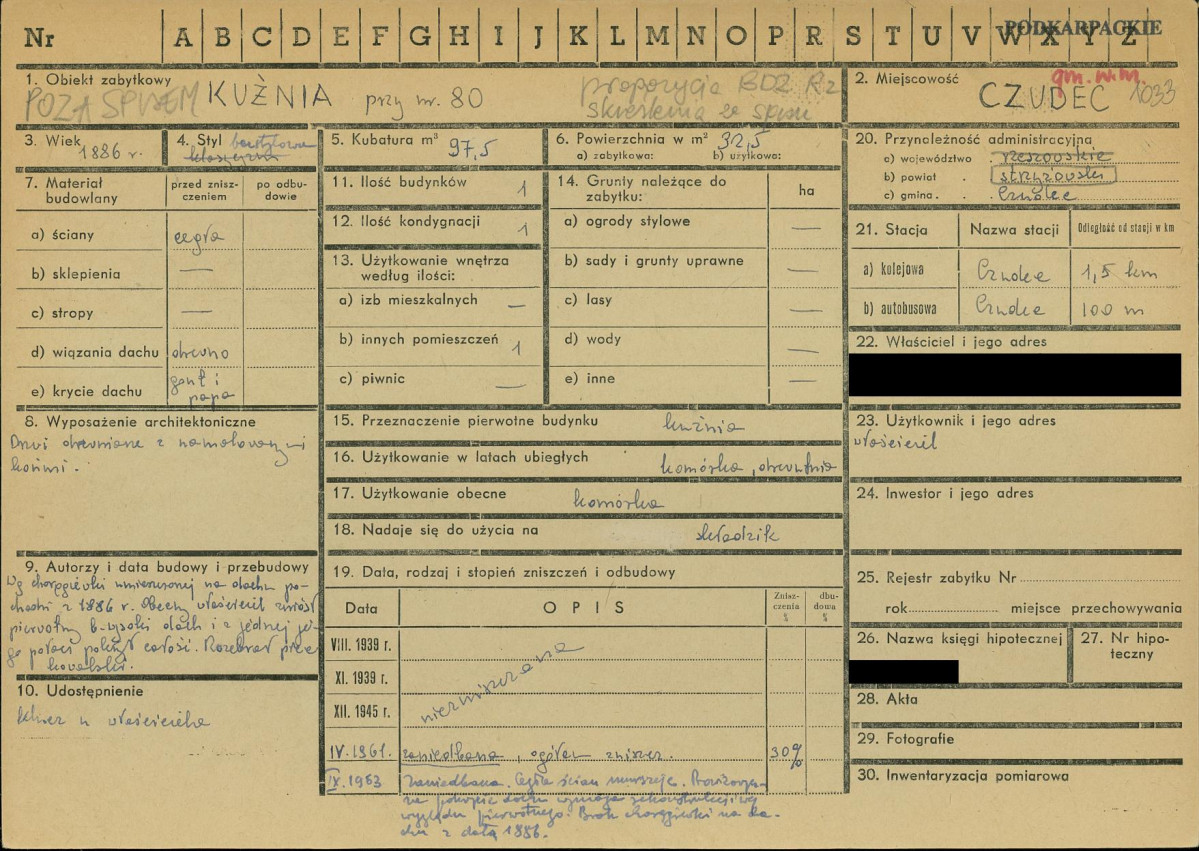 Nr A B C D E F G H I J K L M N O P R S T U V W X Y Z
PODKARPACKIE
1. Obiekt zabytkowy
POZA SPISEM KUŹNIA przy nr. 80
propozycja BDZ Rz
skreślenia ze spisu
2. Miejscowość
gm. w.m.
CZUDEC 1033
3. Wiek
1886 r.
4. Styl bezstylowa
5. Kubatura m³
97,5
6. Powierzchnia w m² 32,5
a) zabytkowa: b) użytkowa:
20. Przynależność administracyjna
a) województwo rzeszowskie
b) powiat strzyżowski
c) gmina Czudec
7. Materiał budowlany
przed zniszczeniem
po odbudowie
a) ściany cegła
b) sklepienia —
c) stropy —
d) wiązania dachu drewno
e) krycie dachu gont i
papa
11. Ilość budynków 1
12. Ilość kondygnacji 1
13. Użytkowanie wnętrza
według ilości:
a) izb mieszkalnych —
b) innych pomieszczeń 1
c) piwnic —
14. Grunty należące do
zabytku:
ha
a) ogrody stylowe —
b) sady i grunty uprawne —
c) lasy —
d) wody —
e) inne —
21. Stacja Nazwa stacji Odległość od stacji w km
a) kolejowa Czudec 1,5 km
b) autobusowa Czudec 100 m
22. Właściciel i jego adres
8. Wyposażenie architektoniczne
Drzwi drewniane z namalowanymi
końmi.
15. Przeznaczenie pierwotne budynku kuźnia
16. Użytkowanie w latach ubiegłych komórka, drewutnia
17. Użytkowanie obecne komórka
18. Nadaje się do użycia na składzik
23. Użytkownik i jego adres
właściciel
24. Inwestor i jego adres
9. Autorzy i data budowy i przebudowy
Wg chorągiewki umieszczonej na dachu po-
chodzi z 1886 r. Obecny właściciel zniósł
pierwotny b. wysoki dach i z jednej je-
go połaci pokrył całość. Rozebrał piec
kowalski.
10. Udostępnienie
klucz u właściciela
19. Data, rodzaj i stopień zniszczeń i odbudowy
Data OPIS Zniszczenia % dbudowa %
VIII. 1939 r.
XI. 1939 r.
XII. 1945 r.
niezniszczona
IV. 1961. zaniedbana, ogółem zniszcz. 30%
IX. 1963 Zaniedbana. Cegła ścian murszeje. Prowizorycz-
ne pokrycie dachu wymaga rekonstrukcji wg
wyglądu pierwotnego. Brak chorągiewki na da-
chu z datą 1886.
25. Rejestr zabytku Nr
rok miejsce przechowywania
26. Nazwa księgi hipotecznej
27. Nr hipo-
teczny
28. Akta
29. Fotografie
30. Inwentaryzacja pomiarowa